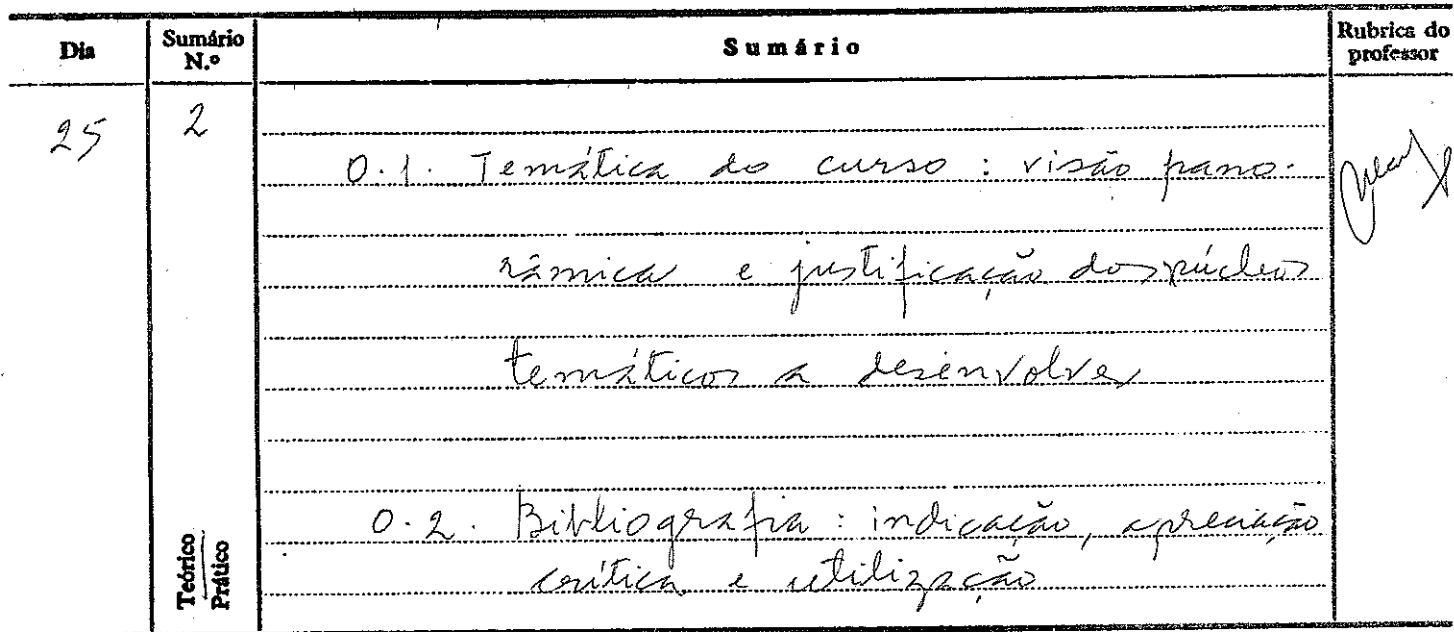 Dia Sumário N.º Sumário Rubrica do professor
25 2
0.1. Temática do curso : visão pano-
râmica e justificação dos núcleos
temáticos a desenvolver
0.2. Bibliografia : indicação, apreciação
crítica e utilização
Teórico
Prático